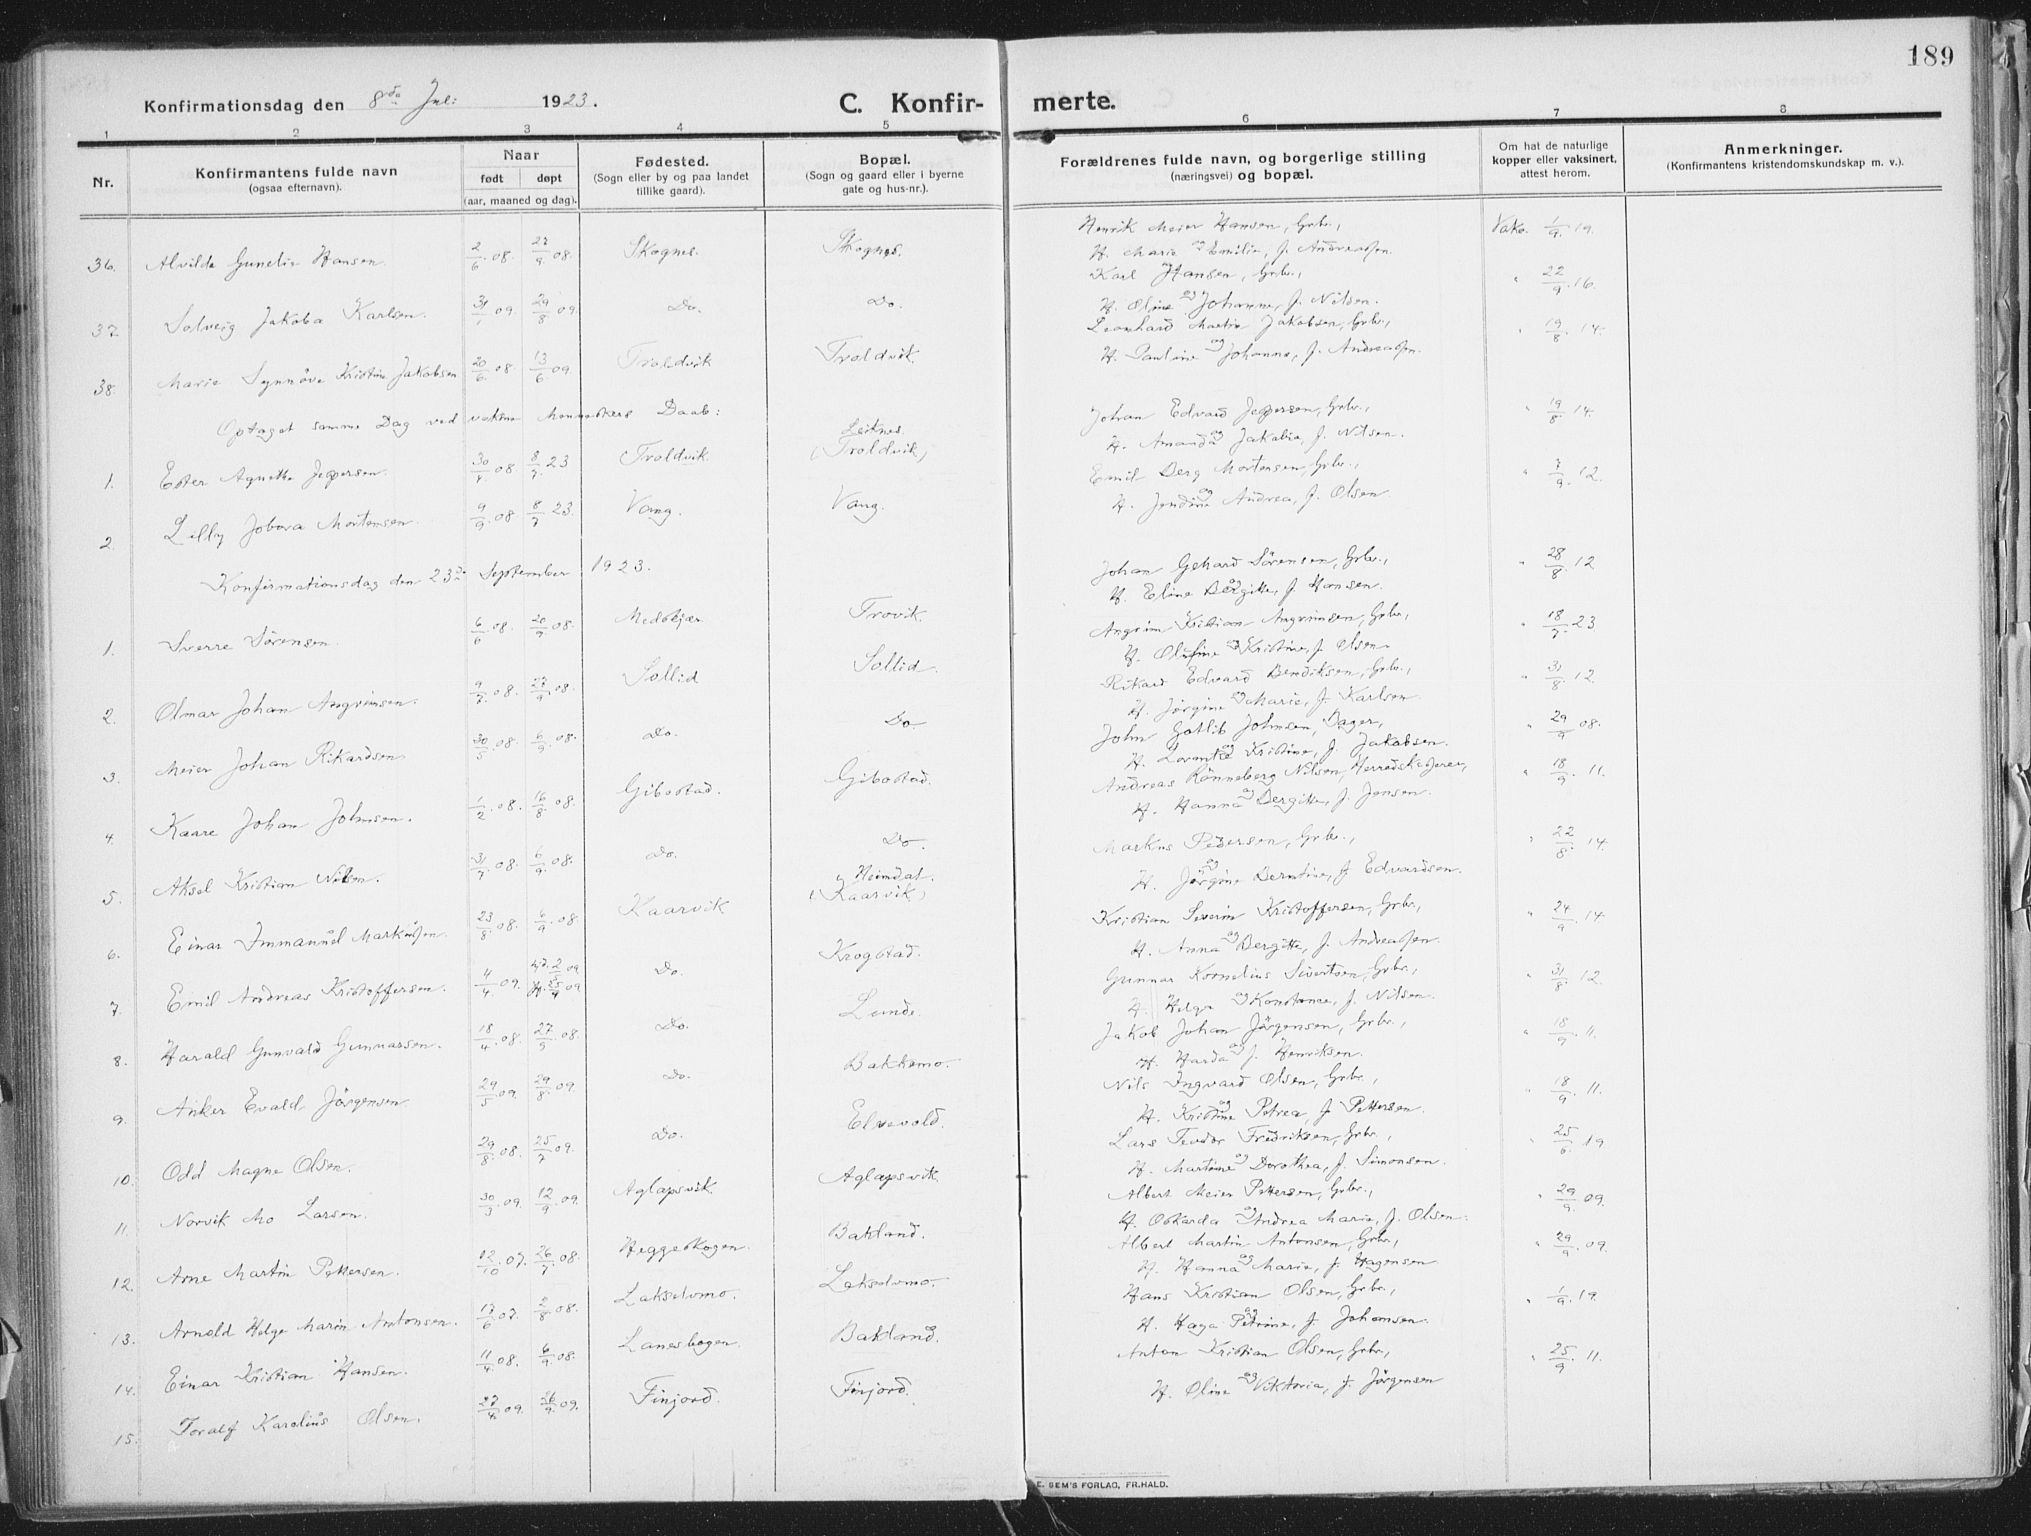 189
Konfirmationsdag den 8de Juli 1923.
C. Konfirmerte.
1 2 3 4 5 6 7 8
Nr.
Konfirmantens fulde navn
(ogsaa efternavn).
Naar
født døpt
(aar, maaned og dag).
Fødested.
(Sogn eller by og paa landet
tillike gaard).
Bopæl.
(Sogn og gaard eller i byerne
gate og hus-nr.).
Forældrenes fulde navn, og borgerlige stilling
(næringsvei) og bopæl.
Om hat de naturlige
kopper eller vaksinert,
attest herom.
Anmerkninger.
(Konfirmantens kristendomskundskap m. v.).
36. Alvilde Gunelie Hansen 2/6.08 27/9.08. Skognes. Skognes. Henrik Meier Hansen, Grbr., Vakc. 1/9.19.
og H. Marie Emilie, f. Andreassen.
37. Solveig Jakoba Karlsen. 31/1.09. 29/8.09. Do. Do. Karl Hansen, Grbr., " 22/9.16.
og H. Oline Johanne, f. Nilsen.
38. Marie Synnöve Kristine Jakobsen 20/6.08 13/6.09. Troldvik Troldvik Leonhard Martin Jakobsen, Grbr., " 19/8.14.
og H. Pauline Johanna, f. Andreassen.
Optaget samme Dag ved voksne Menneskers Daab:
1. Ester Agnethe Jeppesen. 30/ .08 8/7.23 Troldvik. Leiknes. (Troldvik) Johan Edvard Jeppesen, Grbr., " 19/8.14.
og H. Amanda Jakobia, f. Nilsen.
2. Lilly Mortensen. 9/9.08 8/7.23. Vang. Vang. Emil Berg Mortensen, Grbr., " 7/9.12.
og H. Jendine Andrea, f. Olsen.
Konfirmationsdag den 23de September 1923.
1. Sverre Sörensen. 6/6.08. 20/9.08. Medbyjær Trovik. Johan Gehard Sörensen, Grbr., " 28/8.12
og H. Eline Bergitte, f. Hansen.
2. Olmar Johan Angrimsen. 9/7.08. 27/9.08. Sollid Sollid. Angrim Kristian Angrimsen, Grbr., " 18/7.23
og H. Olufine Kristine, f. Olsen.
3. Meier Johan Rikardsen 30/5.08. 6/9.08. Do. Do. Rikard Edvard Bendiksen, Grbr., " 31/8.12.
og H. Jørgine Marie, f. Karlsen.
4. Kaare Johan Johnsen. 1/2.08. 16/8.08. Gibostad. Gibostad. John Gotlib Johnsen, Bager, " 29/9.08.
og H. Lorentse Kristine, f. Jakobsen.
5. Aksel Kristian Nilsen. 31/7.08. 6/9.08. Do. Do. Andreas Rönneberg Nilsen, Herredskasserer, " 18/9.11.
og H. Hanna Bergitte, f. Jensen.
6. Einar Immanuel Markussen. 23/8.08. 6/9.08. Kaarvik Heimdal. (Kaarvik) Markus Pedersen, Grbr., " 22/8.14.
og H. Jørgine Berntine, f. Edvardsen.
7. Emil Andreas Kristoffersen. 4/4.09. Hjd. 2/ 09 Kf. 25/4 09 Do. Krogstad. Kristian Severin Kristoffersen, Grbr., " 24/9.14
og H. Anna Bergitte, f. Andreassen.
8. Harald Gunvald Gunnarsen. 18/4.08. 27/9.08. Do. Lunde. Gunnar Kornelius Sivertsen, Grbr., " 31/8.12.
og H. Helga Konstance, f. Nilsen.
9. Anker Evald Jörgensen 29/5.09. 29/8.09. Do. Bakkemo. Jakob Johan Jörgensen, Grbr., " 18/9.11.
og H. Harda f. Henriksen.
10. Odd Magne Olsen. 29/8.08. 25/7.09. Do. Elvevold. Nils Ingvard Olsen, Grbr., " 18/9.11.
og H. Kristine Petrea, f. Pettersen.
11. Norvik Mo Larsen. 30/3.09. 12/9.09. Aglapsvik. Aglapsvik. Lars Teodor Fredriksen, Grbr., " 25/6.19
og H. Martine Dorothea, f. Simonsen.
12. Arne Martin Pettersen. 12/10.07. 26/7.08. Heggeskogen. Bakland. Albert Meier Pettersen, Grbr., " 29/9.09.
og H. Oskarda Andrea Marie, f. Olsen.
13. Arnold Helge Marin Antonsen. 17/6.07. 2/8.08. Lakselvmo. Lakselvmo. Albert Martin Antonsen, Grbr., " 29/9.09.
og H. Hanna Marie, f. Hagensen
14. Einar Kristian Hansen. 11/4.08. 6/9.08. Lanesbogen. Bakland. Hans Kristian Olsen, Grbr., " 1/9.19.
og H. Haga Petrine, f. Johansen.
15. Toralf Karelius Olsen. 27/4.09. 26/9.09. Finjord. Finjord. Anton Kristian Olsen, Grbr., " 25/9.11.
og H. Oline Viktoria, f. Jörgensen
E. SEM'S FORLAG, FR.HALD.